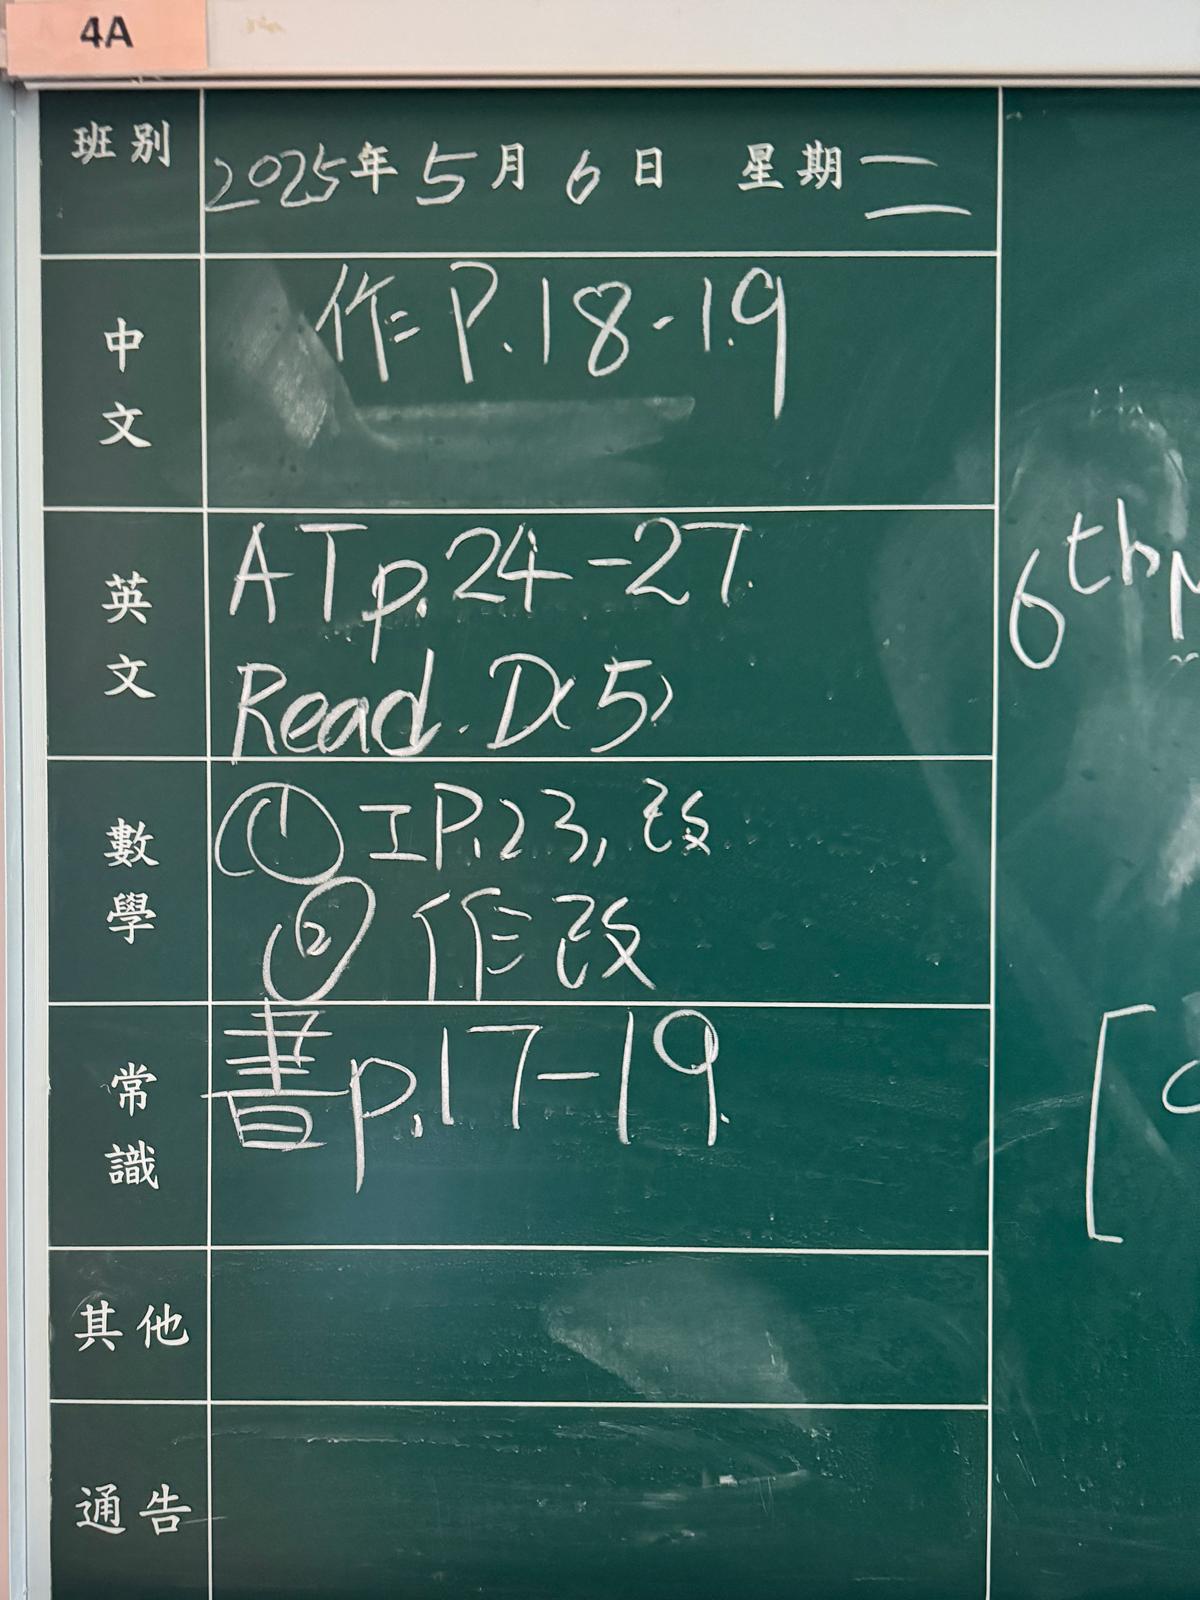 4A
班別 2025年5月6日 星期二
中文 作 P.18-19
英文 AT p.24-27
Read. D(5)
數學 ① 工P.23, 改
② 作改
常識 書p.17-19.
其他
通告
6th